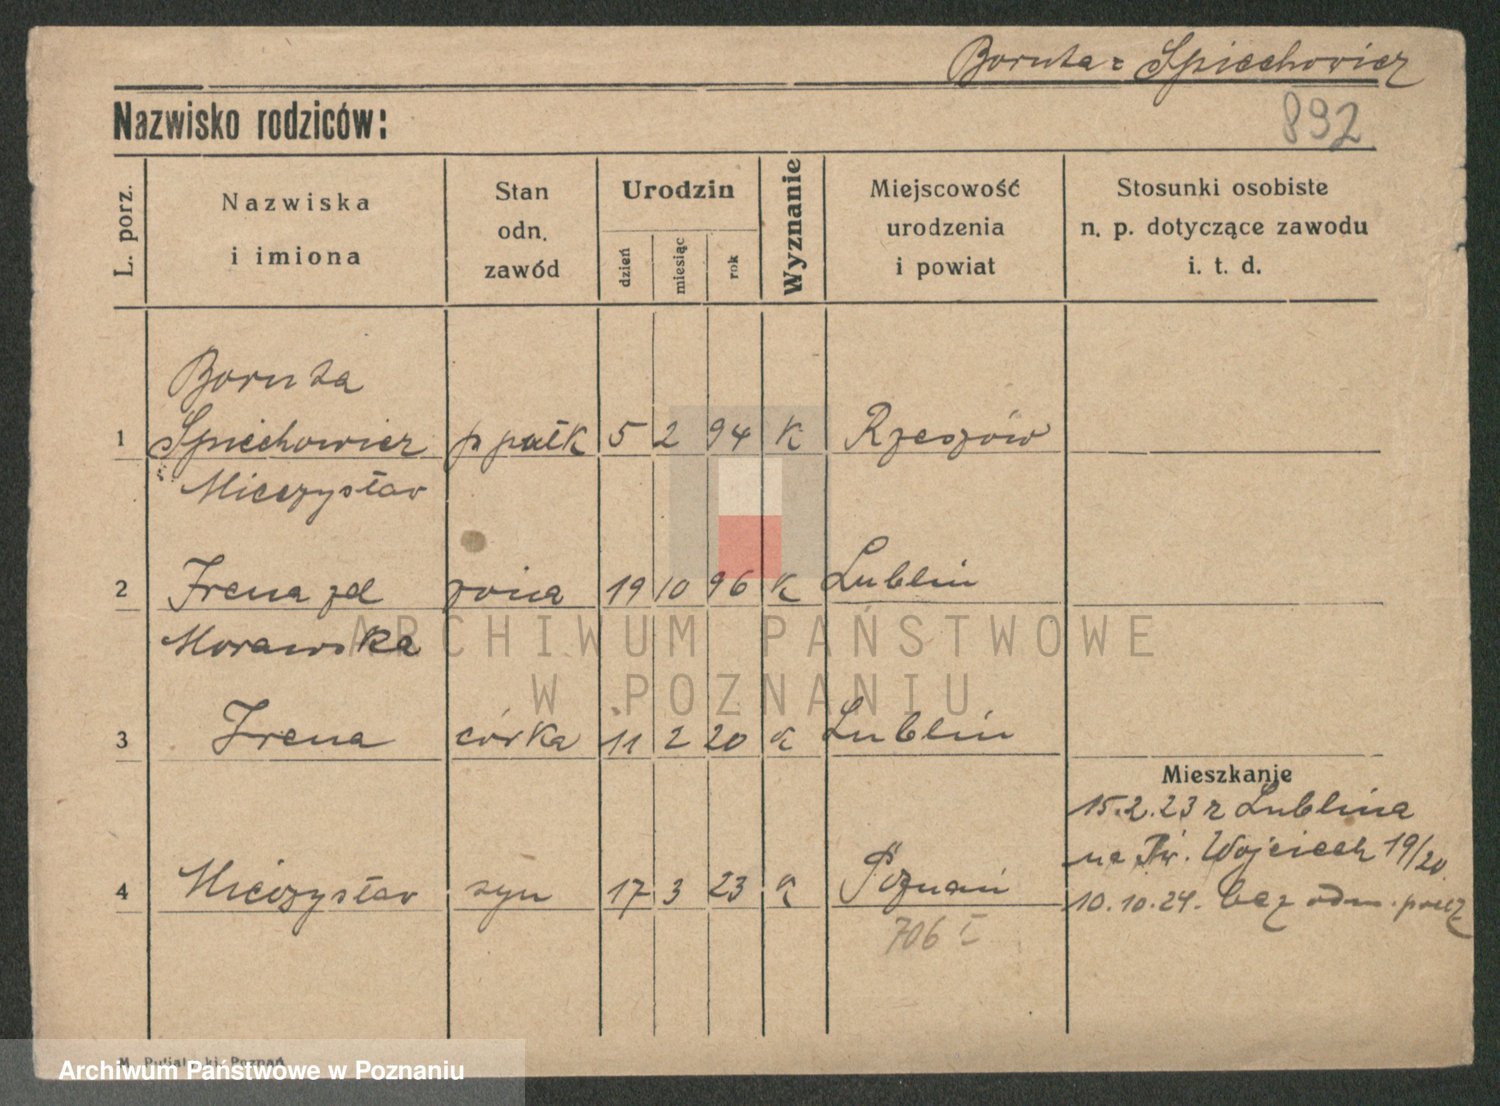 Boruta = Spiechowicz
Nazwisko rodziców:
892
L. porz.
Nazwiska
i imiona
Stan
odn.
zawód
Urodzin
dzień
miesiąc
rok
Wyznanie
Miejscowość
urodzenia
i powiat
Stosunki osobiste
n. p. dotyczące zawodu
i. t. d.
Boruta
1 Spiechowicz ppułk 5 2 94 K Rzeszów
Mieczysław
2 Irena zd żona 19 10 96 K Lublin
Morawska
ARCHIWUM PAŃSTWOWE
W POZNANIU
3 Irena córka 11 2 20 K Lublin
Mieszkanie
15.2.23 z Lublina
na Św. Wojciech 19/20.
4 Mieczysław syn 17 3 23 K Poznań
10.10.24. bez odm.
706 I
M. Poznań
Archiwum Państwowe w Poznaniu